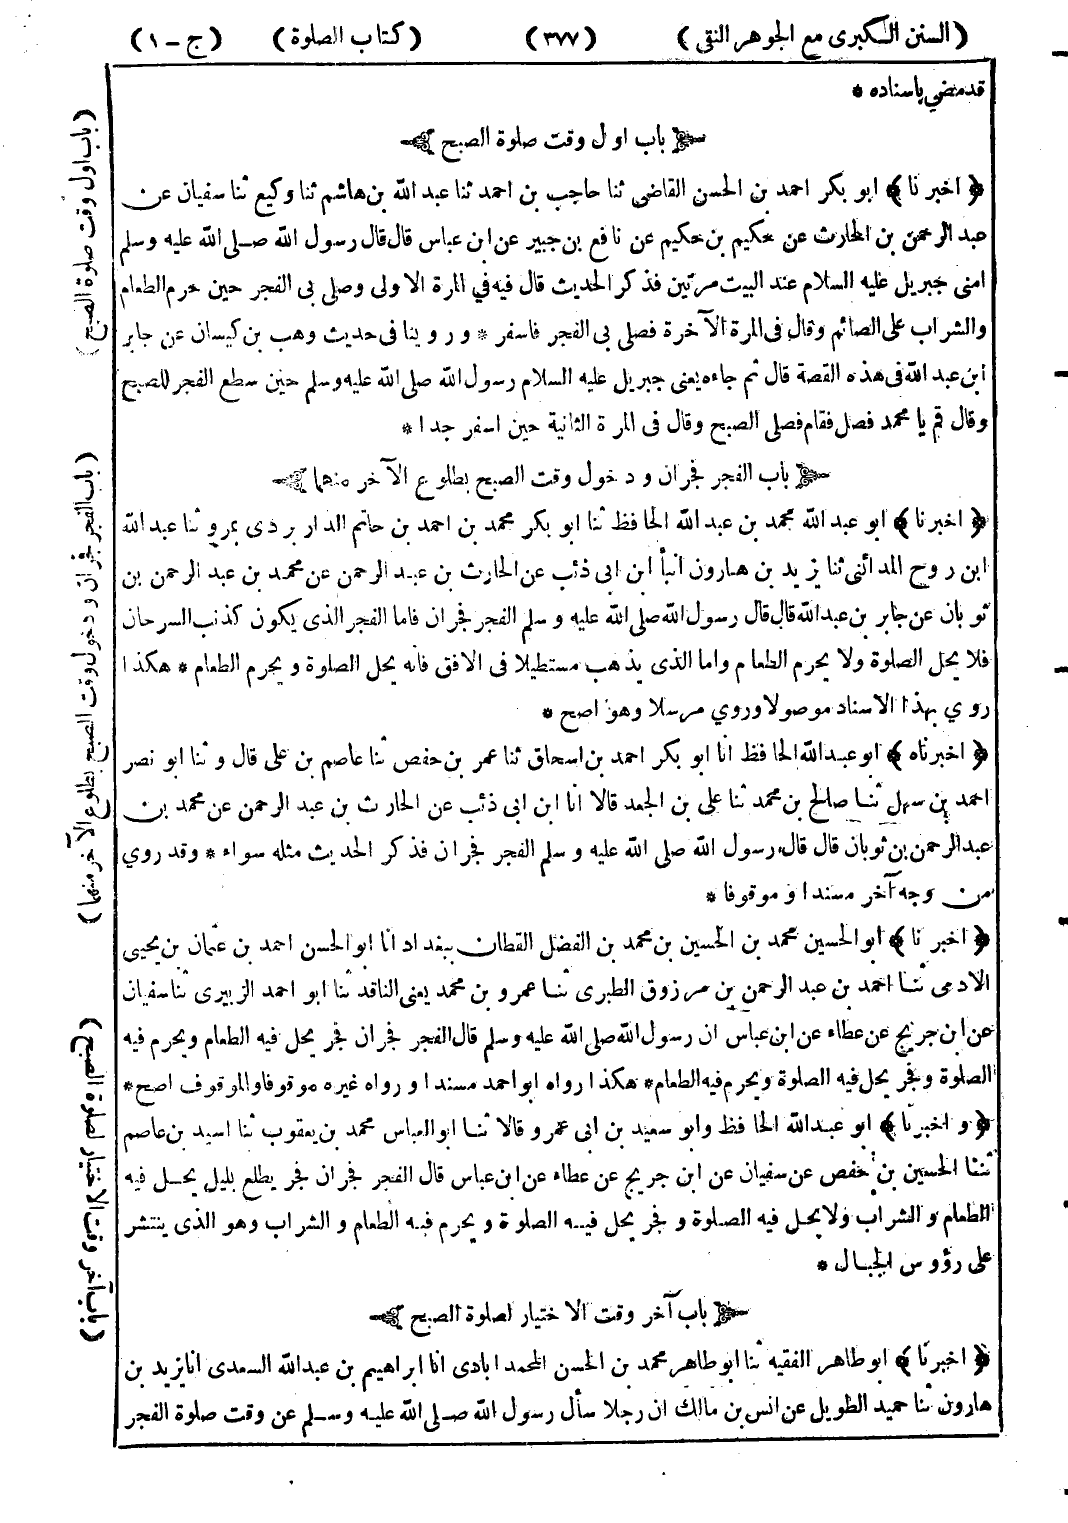 (السنن الكبرى مع الجوهر النقى) (٣٧٧) (كتاب الصلوة) (ج - ١)
قد مضى باسناده *
باب اول وقت صلوة الصبح
﴿ اخبرنا ﴾ ابو بكر احمد بن الحسن القاضى ثنا حاجب بن احمد ثنا عبد الله بن هاشم ثنا وكيع ثنا سفيان عن
عبد الرحمن بن الحارث عن حكيم بن حكيم عن نافع بن جبير عن ابن عباس قال قال رسول الله صلى الله عليه وسلم
امنى جبريل عليه السلام عند البيت مرتين فذكر الحديث قال فيه فى المرة الاولى وصلى بى الفجر حين حرم الطعام
والشراب على الصائم وقال فى المرة الآخرة فصلى بى الفجر فاسفر * وروينا فى حديث وهب بن كيسان عن جابر
ابن عبد الله فى هذه القصة قال ثم جاءه يعنى جبريل عليه السلام رسول الله صلى الله عليه وسلم حين سطع الفجر للصبح
وقال قم يا محمد فصل فقام فصلى الصبح وقال فى المرة الثانية حين اسفر جدا *
باب الفجر فجران ودخول وقت الصبح بطلوع الآخر منهما
﴿ اخبرنا ﴾ ابو عبد الله محمد بن عبد الله الحافظ ثنا ابو بكر محمد بن احمد بن حاتم الداربردى بمرو ثنا عبد الله
ابن روح المدائنى ثنا يزيد بن هارون انبأ ابن ابى ذئب عن الحارث بن عبد الرحمن عن محمد بن عبد الرحمن بن
ثوبان عن جابر بن عبد الله قال قال رسول الله صلى الله عليه وسلم الفجر فجران فاما الفجر الذى يكون كذنب السرحان
فلا يحل الصلوة ولا يحرم الطعام واما الذى يذهب مستطيلا فى الافق فانه يحل الصلوة ويحرم الطعام * هكذا
روى بهذا الاسناد موصولا وروي مرسلا وهو اصح *
﴿ اخبرناه ﴾ ابو عبد الله الحافظ انا ابو بكر احمد بن اسحاق ثنا عمر بن حفص ثنا عاصم بن على قال وثنا ابو نصر
احمد بن سهل ثنا صالح بن محمد ثنا على بن الجعد قالا انا ابن ابى ذئب عن الحارث بن عبد الرحمن عن محمد بن
عبد الرحمن بن ثوبان قال قال رسول الله صلى الله عليه وسلم الفجر فجران فذكر الحديث مثله سواء * وقد روي
من وجه آخر مسندا وموقوفا *
﴿ اخبرنا ﴾ ابو الحسين محمد بن الحسين بن محمد بن الفضل القطان ببغداد انا ابو الحسن احمد بن عثمان بن يحيى
الادمى ثنا احمد بن عبد الرحمن بن مرزوق الطبرى ثنا عمرو بن محمد يعنى الناقد ثنا ابو احمد الزبيرى ثنا سفيان
عن ابن جريج عن عطاء عن ابن عباس ان رسول الله صلى الله عليه وسلم قال الفجر فجران فجر يحل فيه الطعام ويحرم فيه
الصلوة وفجر يحل فيه الصلوة ويحرم فيه الطعام * هكذا رواه ابو احمد مسندا ورواه غيره موقوفا والموقوف اصح *
﴿ واخبرنا ﴾ ابو عبد الله الحافظ وابو سعيد بن ابى عمرو قالا ثنا ابو العباس محمد بن يعقوب ثنا اسيد بن عاصم
ثنا الحسين بن حفص عن سفيان عن ابن جريج عن عطاء عن ابن عباس قال الفجر فجران فجر يطلع بليل يحل فيه
الطعام والشراب ولا يحل فيه الصلوة وفجر يحل فيه الصلوة ويحرم فيه الطعام والشراب وهو الذى ينتشر
على رؤوس الجبال *
باب آخر وقت الاختيار لصلوة الصبح
﴿ اخبرنا ﴾ ابو طاهر الفقيه ثنا ابو طاهر محمد بن الحسن المحمد ابادى انا ابراهيم بن عبد الله السعدى انا يزيد بن
هارون ثنا حميد الطويل عن انس بن مالك ان رجلا سأل رسول الله صلى الله عليه وسلم عن وقت صلوة الفجر
(باب اول وقت صلوة الصبح)
(باب الفجر فجران ودخول وقت الصبح بطلوع الآخر منهما)
(باب آخر وقت الاختيار لصلوة الصبح)